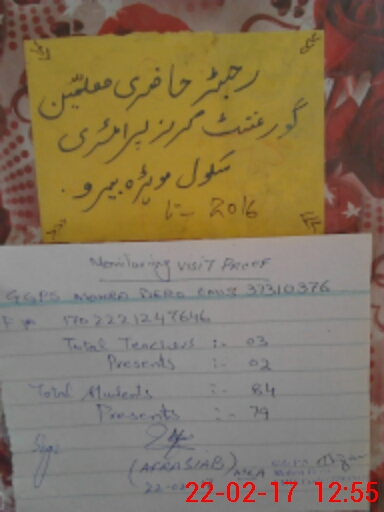 رجسٹر حاضری معلمین
گورنمنٹ گرلز پرائمری
سکول موہڑہ بیرو
تا - 2016
Monitoring visit Proof
GGPS MOHRA BERO EMIS 37310376
1702221247646
Total Teachers :- 03
Presents :- 02
Total Students :- 84
Presents :- 79
Sign
(AFRASIAB) MEA GGPS
22-02-17 12:55